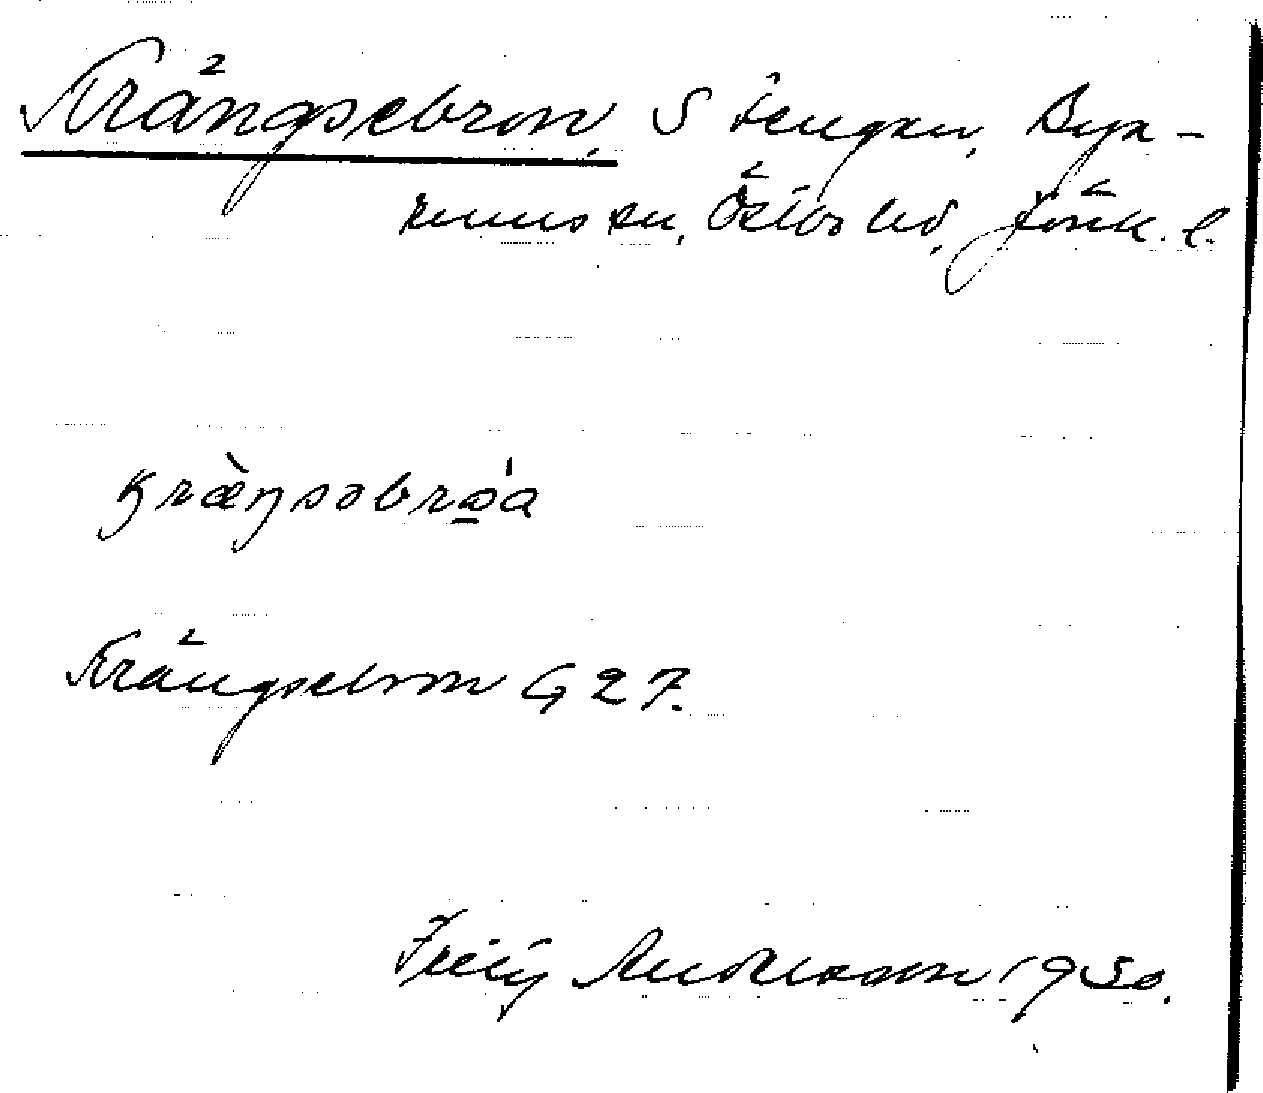 Krängsebron, S Stengen, Byn-
rums sn, Östbo hd, Jönk. l.
kræ̀ŋsəbrωa
Krängsebron G 27.
Andersson 1950.